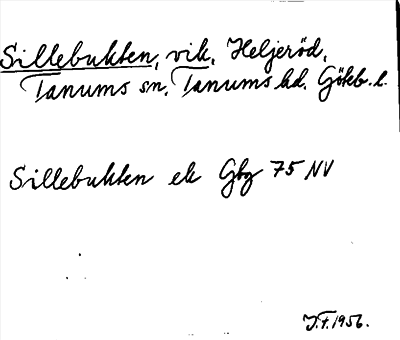 Sillebukten, vik, Heljeröd,
Tanums sn, Tanums hd. Götb. l.
Sillebukten ek Gbg 75 NV
J.F. 1956.